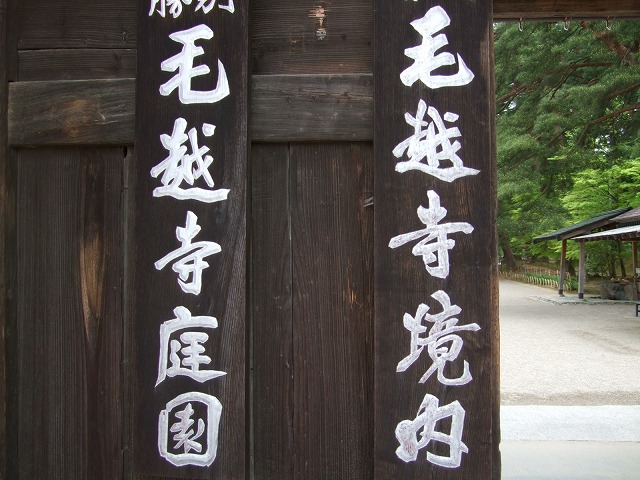 毛越寺境内
勝
毛越寺庭園